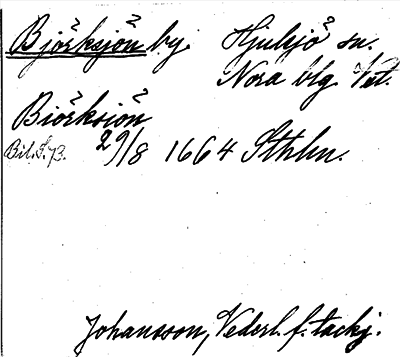 Björksjön by. Hjulsjö sn.
Nora blg. Vst.
Biörksiön
Bil. S. 73. 29/8 1664 Sthlm.
Johansson, Nederl. f. tackj.